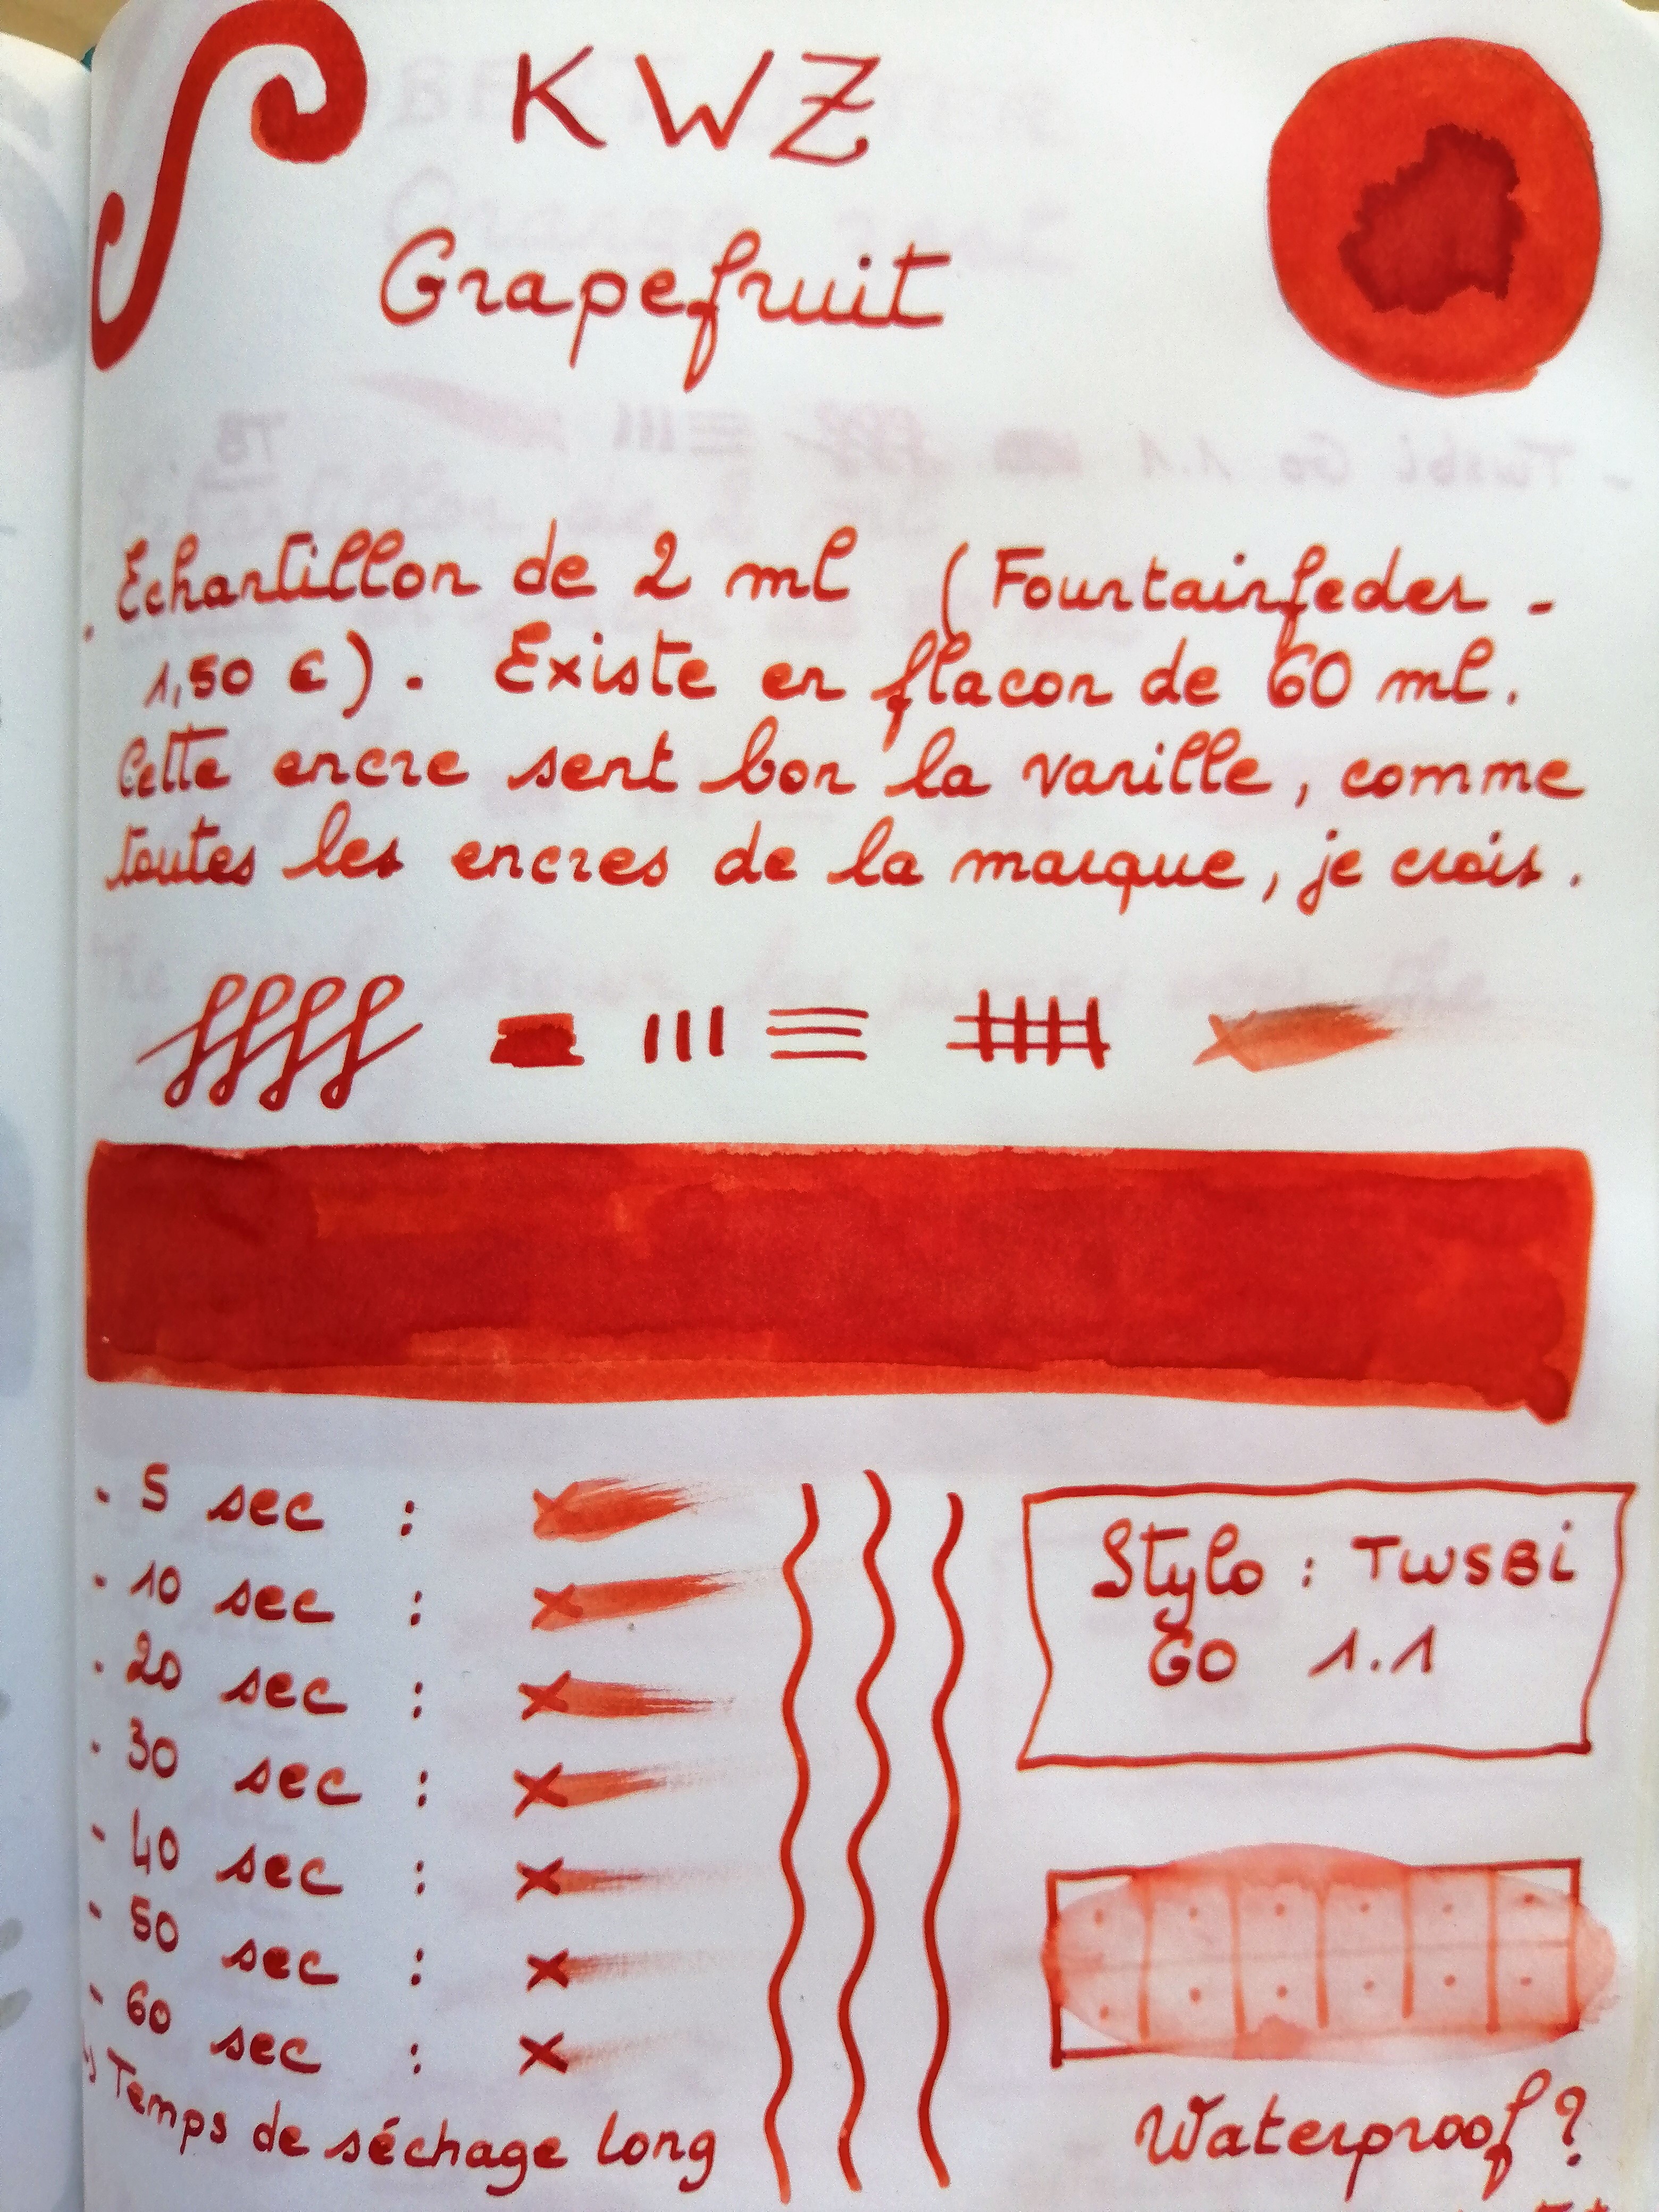 KWZ
Grapefruit
. Echantillon de 2 ml (Fountainfeder -
1,50 €). Existe en flacon de 60 ml.
Cette encre sent bon la vanille, comme
toutes les encres de la marque, je crois.
- 5 sec :
- 10 sec :
- 20 sec :
- 30 sec :
- 40 sec :
- 50 sec :
- 60 sec :
Temps de séchage long
Stylo : TWSBi
GO 1.1
Waterproof ?